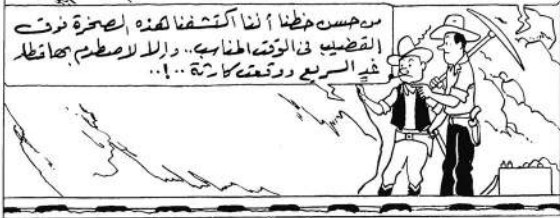 من حسن حظنا أننا اكتشفنا هذه الصخرة فوق
القضيب فى الوقت المناسب.. وإلا لاصطدم بها قطار
غدٍ السريع ووقعت كارثة..!..